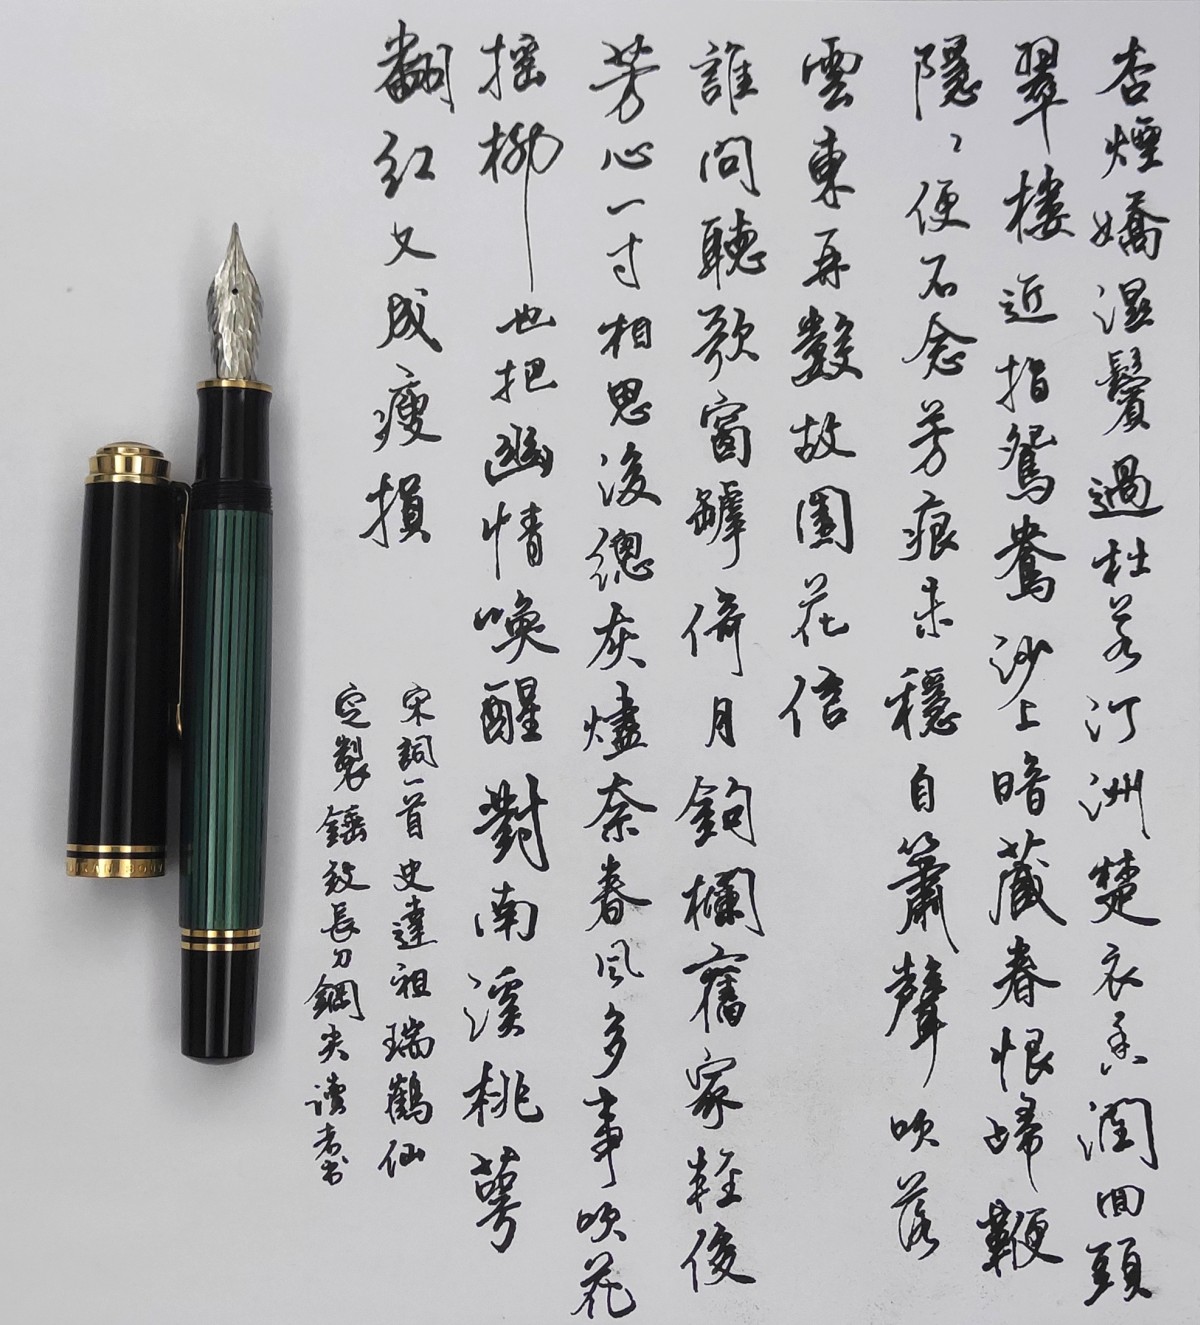 杏煙嬌濕鬢過杜若汀洲楚衣香潤回頭
翠樓近指鴛鴦沙上暗藏春恨歸鞭
隱〻便不念芳痕未穩自簫聲吹落
雲東再數故園花信
誰問聽歌窗罅倚月鉤欄舊家輕俊
芳心一寸相思後總灰燼奈春風多事吹花
搖柳也把幽情喚醒對南溪桃萼
翻紅又成瘦損
宋詞一首史達祖瑞鶴仙
定製錘紋長刀鋼尖讀者書